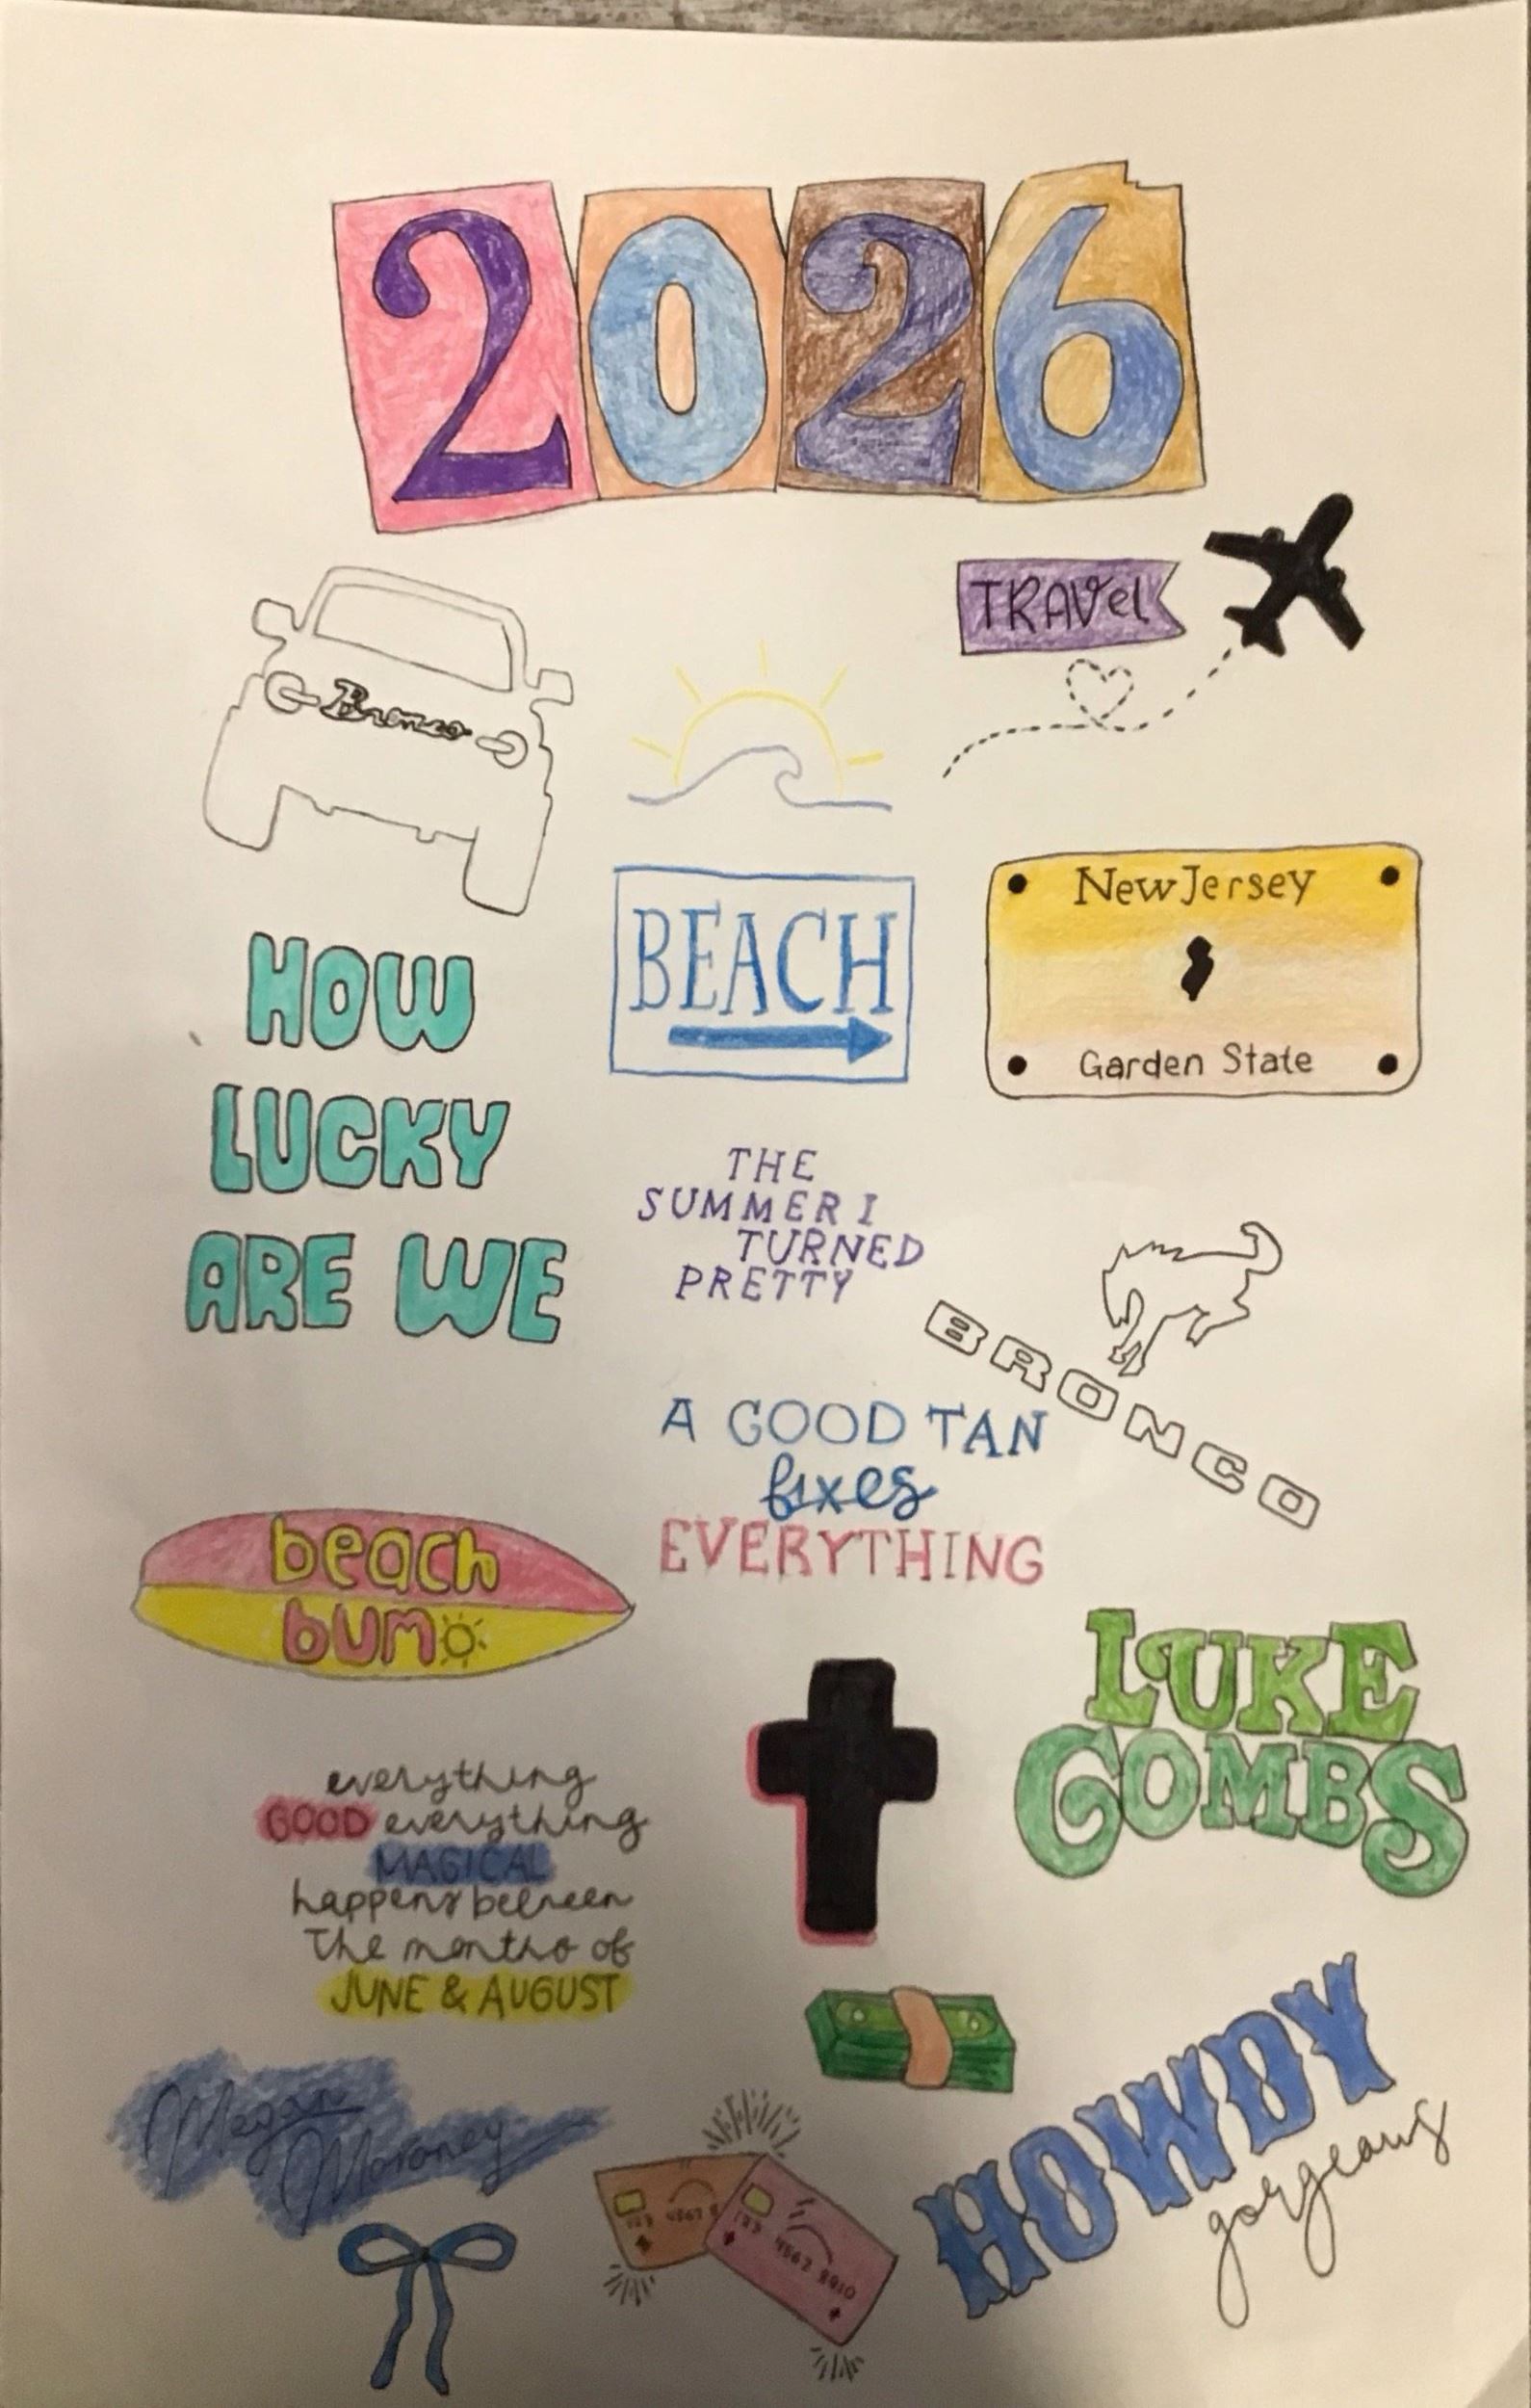 2026
TRAVel
Bronco
BEACH
New Jersey
Garden State
HOW
LUCKY
ARE WE
THE
SUMMER I
TURNED
PRETTY
BRONCO
A GOOD TAN
fixes
EVERYTHING
beach
bum
LUKE
COMBS
everything
GOOD everything
MAGICAL
happens between
The months of
JUNE & AUGUST
Megan
Moroney
HOWDY
gorgeous
123 4567 8
123 4567 8910